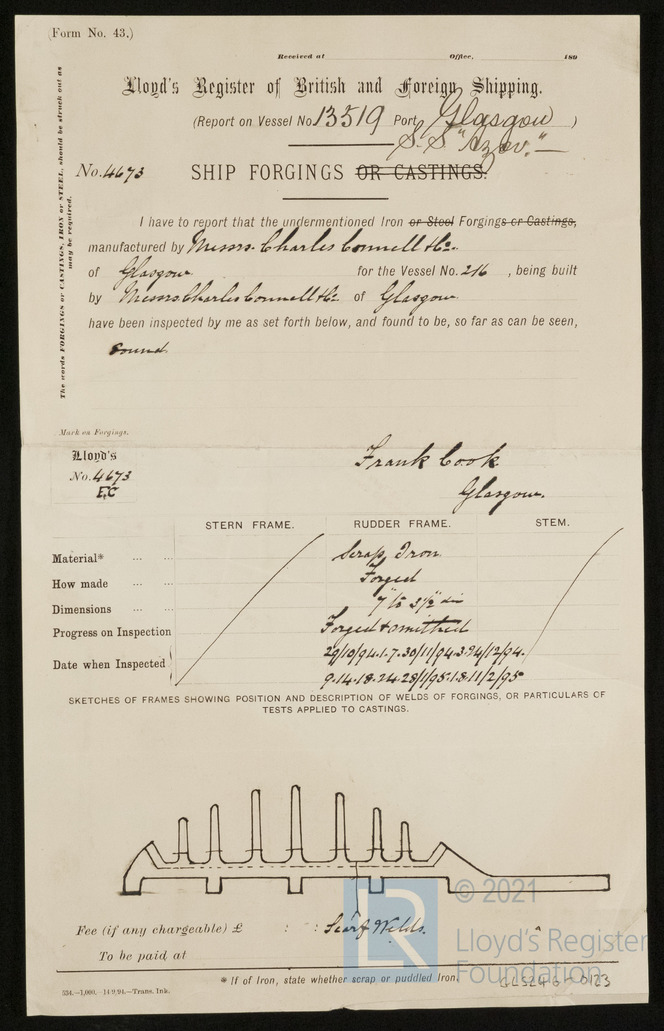 (Form No. 43.)
Received at Office, 189
Lloyd's Register of British and Foreign Shipping.
(Report on Vessel No 13519 Port Glasgow )
S.S "Azov."
No. 4673 SHIP FORGINGS OR CASTINGS.
The words FORGINGS or CASTINGS, IRON or STEEL, should be struck out as
may be required.
I have to report that the undermentioned Iron or Steel Forgings or Castings,
manufactured by Messrs. Charles Connell & Co.
of Glasgow for the Vessel No. 216 , being built
by Messrs Charles Connell & Co of Glasgow
have been inspected by me as set forth below, and found to be, so far as can be seen,
sound
Mark on Forgings.
Lloyd's
No. 4673
Frank Cook
Glasgow.
STERN FRAME. RUDDER FRAME. STEM.
Material* ... ... Scrap Iron
How made ... ... Forged
Dimensions ... ... 7" to 3½" dia
Progress on Inspection Forged & smithed
Date when Inspected 29/10/94.1.7.30/11/94.3.
9.14.18.24.28/1/95.1.8.11/2/95
SKETCHES OF FRAMES SHOWING POSITION AND DESCRIPTION OF WELDS OF FORGINGS, OR PARTICULARS OF
TESTS APPLIED TO CASTINGS.
© 2021
Lloyd's Register
Foundation
Fee (if any chargeable) £ : : Scarf Welds.
To be paid at
* If of Iron, state whether scrap or puddled Iron.
534.—1,000.—14/9/94.—Trans. Ink.